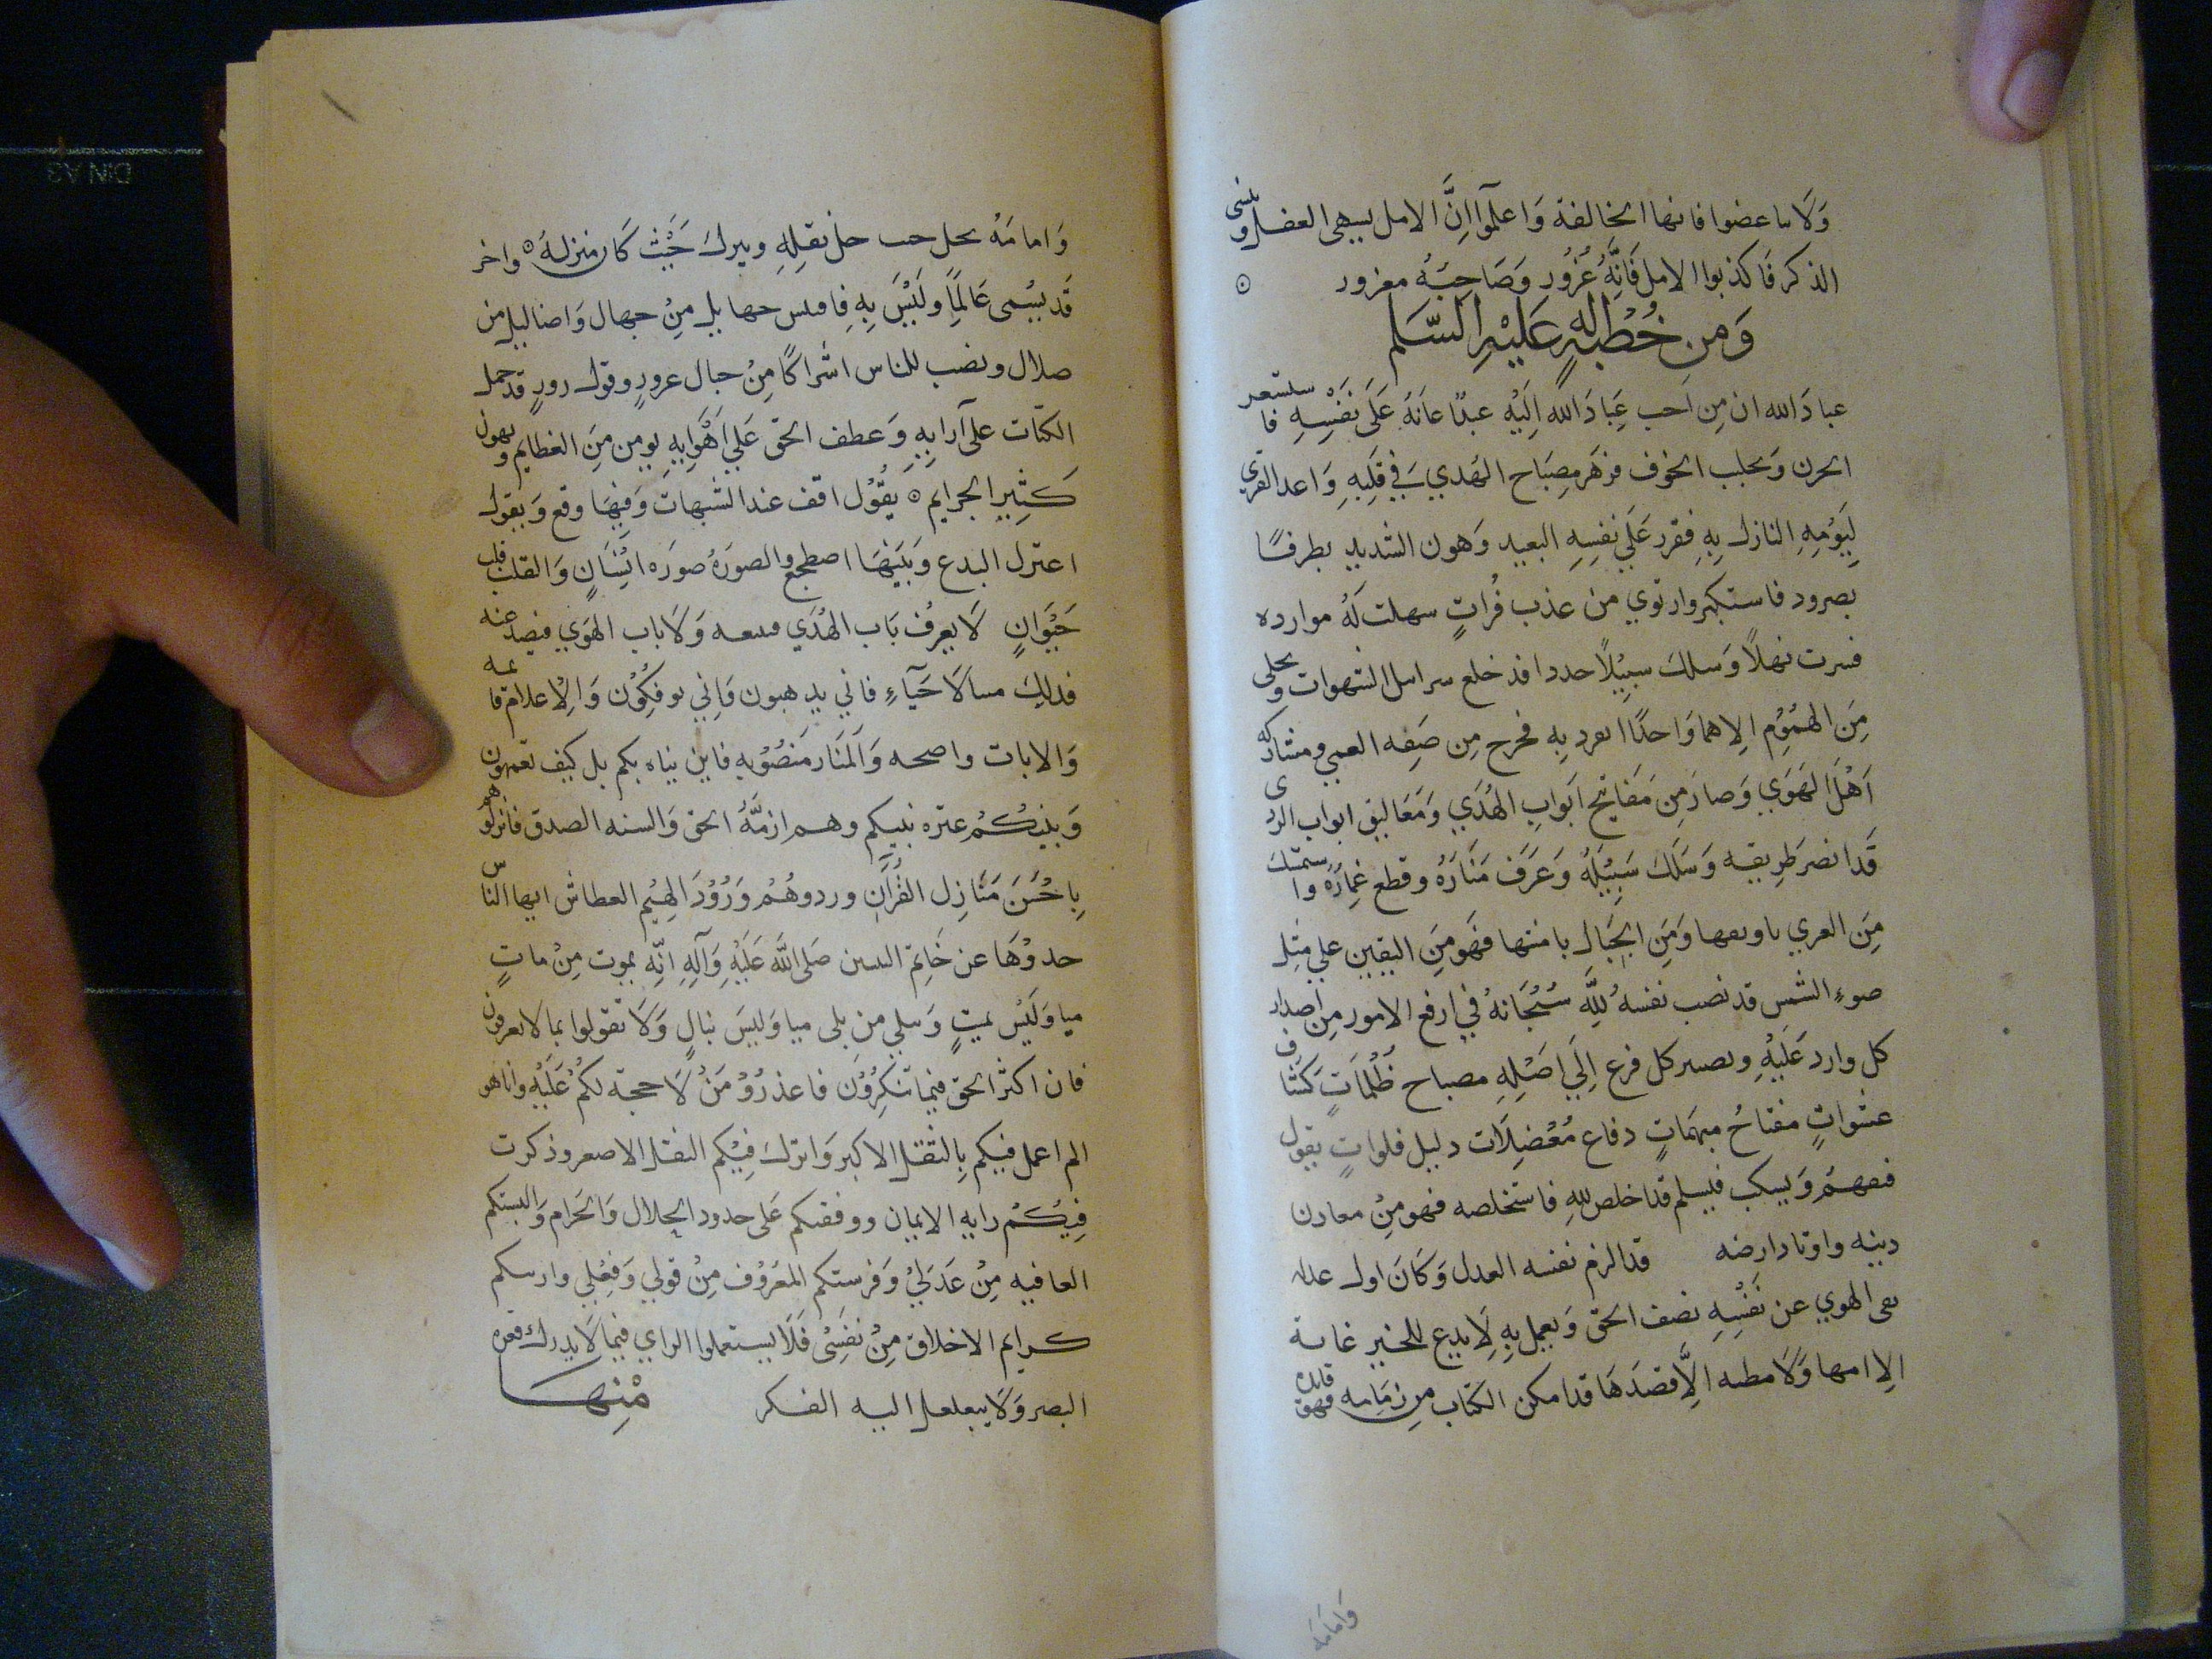 وَلَا تباغضوا فانها الحالفة وَاعلَموا اِنَّ الامل يسهى العقل وينسى
الذكر فَاكذبوا الامل فَاِنَّهُ غُرُور وَصَاحِبَهُ مغرور ⊙
وَمن خُطْبَةٍ لَه عَلَيْهِ السَّلم
عبادَ الله ان مِن اَحب عِبَادَ الله اِلَيْهِ عبدًا اعانَهُ عَلَى نَفْسِهِ فاستشعر
الحزن وَتجلبب الخوف فزهَر مِصبَاح الهَدي في قَلبِهِ وَاعد القري
لِيَوْمِهِ النازل بِهِ فقرب عَلَي نفسِهِ البعيد وَهون الشديد نظر فـ
بصر وذكر فاستكثر وارتوي من عذب فُراتٍ سهلت لَهُ موارده
فشرب نهلاً وَسلك سبيْلاً جددا قد خلع سرابيل الشهوات وتخلى
مِنَ الهمُوْمِ الا هما وَاحدًا انفرد بِهِ فخرج مِن صَفِه العمي ومشاركه
اَهْل الهَوَي وَصار مِن مَفاتيح ابَوابِ الهُدَي وَمَغَاليق ابواب الردى
قَد ابصر طَرِيقه وَسَلَك سَبيْلَهُ وَعَرَف مَنَارَهُ وقطع غِمارَهُ واستمسك
مِنَ العري باوثقها وَمَنِ الجِبَال بامتنها فهَو مِنَ اليقين علي مثِل
ضوءِ الشمس قد نصب نفسهُ لِلّهِ سُبْحَانهُ في ارفع الامور مِن اصدار
كل وارد عَلَيْهِ وتصيير كل فرع اِلَي اصْلِهِ مصباح ظُلُمَاتٍ كَشاف
عشواتٍ مفتاحُ مبهَمَاتٍ دفاع مُعْضِلَات دليل فلواتٍ يقول
فيفهمُ وَيسكت فيسلم قد اخلص للهِ فاستخلصه فهو مِنْ معادن
دينه واوتاد ارضه قد الزم نفسه العدل وَكَان اول عدله
نفي الهوي عن نَفْسِهِ يصف الحق وَيعمل بِهِ لَا يدع للخير غاية
الا امها وَلَا مظنه الَّا قصَدَهَا قد امكن الكتاب مِن زمَامِه فهو قايده
وَامَامَهُ
وَامامَهُ يحل حيث حل ثقلِهِ وينزل حَيْث كَان منزلهُ ⊙ واخر
قَد يسْمى عَالَمِاً ولَيْسَ بِهِ فاقتبس جهايل مِنْ جهال وَاضاليل من
ضلال ونصب للناس اشراكًا مِنْ حبال غرورٍ وقول زورٍ قد حمل
الكتاب على آرايهِ وَعطف الحق عَلي اَهْوايهِ يومن مِنَ العظايم ويهون
كَثِير الجرايم ⊙ يقُوْل اقف عند الشبهات وَفيهَا وقع وَيقول
اعتزل البدع وَبَيْنهَا اضطجع والصورَهُ صورَه انْسَانٍ وَالقلب قلب
حَيْوَانٍ لَا يعِرُف بَاب الهُدَي فيتبعه وَلَا باب الهَوَي فيصد عنه
فذلِك ميت الاحَيَآءِ فاني يذهبون وَاِني توفكِوُن وَالْاعلام قايمه
وَالايات واضحه وَالمنَار مَنصُوْبه فاين يتاه بكم بل كيف تعمهون
وَبينكُمْ عتره نبيكم وهم ازمَّهُ الحق وَالسنه الصدق فانزلوهم
بِاحْسَنَ مَنَازِل القُرْآنِ وردوهُمْ وَرُوْدَ الهِيْم العطاش ايها الناس
خذوْهَا عن خَاتِم النبيين صَلى اللَّه عَلَيْهِ وَآلِهِ انّهِ يموت مِنْ ماتٍ
منا وَلَيْس بميتٍ وَيبلي من بلى منا وَليسَ ببالٍ وَلَا تقولوا بما لا تعرفون
فان اكثر الحق فيما تنكِروُن فاعذرُوْ مَنْ لَا حجة لكمُ عَلَيْهِ وانا هو
الم اعمل فيكم بِالثقل الاكبر وَاترك فِيْكم الثقل الاصغر وذكرت
فِيْكُمْ رايه الايمان ووقفتكم عَلى حدود الحلال وَالحَرام وَالبستكم
العافيه مِنْ عَدَليْ وَفرستكم المعَروُف مِنْ قولي وَفِعْلي واريتكم
كرايم الاخلاق مِنْ نفسَيْ فَلَا يستعملوا الراي فيما لَا يدرك قعره
البصر وَلَا يتغلغل اليه الفكر مْنِهَا